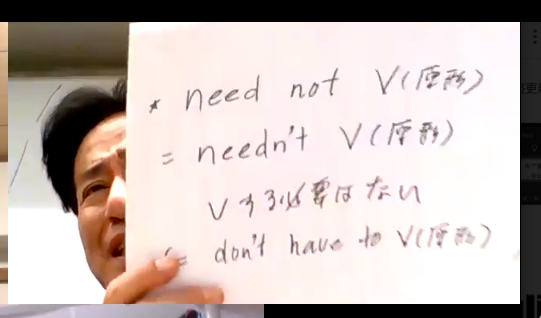 * need not V(原形)
= needn't V(原形)
Vする必要はない
(= don't have to V(原形)